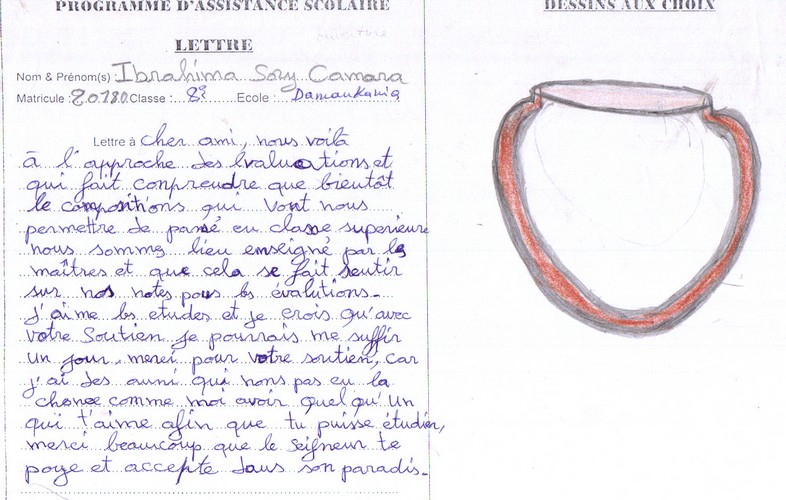 PROGRAMME D'ASSISTANCE SCOLAIRE
DESSINS AUX CHOIX
LETTRE
Nom & Prénom(s) : Ibrahima Sory Camara
Matricule : 20180 Classe : 8è Ecole : Damankania
Lettre à cher ami, nous voilà
à l'approche des evaluations et
qui fait conprendre que bientôt
le compositions qui vont nous
permettre de passé en classe superieure
nous somme bien enseigné par les
maîtres et que cela se fait sentir
sur nos notes pour les évalutions.
J'aime les etudes et je crois qu'avec
votre soutien je pourrais me suffir
un jour, merci pour votre soutien, car
j'ai des ammi qui nons pas eu la
chance comme moi avoir quelqu'un
qui t'aime afin que tu puisse étudier,
merci beaucoup que le seigneur te
paye et accepte dans son paradis.